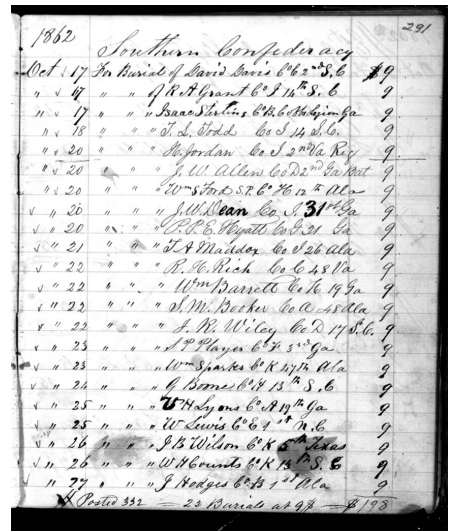 291
1862
Southern Confederacy
Oct √ 17 For Burial of David Davis Co E 2nd S.C $9
" √ 17 " " of R A Grant Co I 14th S.C 9
" √ 17 " " " Isaac Co B Co Legion Ga 9
" √ 18 " " " T. L. Todd Co I 14 S.C. 9
" √ 20 " " " H. Jordan Co I 2nd Va Reg 9
" √ 20 " " " J. W. Allen Co D 2nd Ga Bat 9
" √ 20 " " " Wm S Ford Co H 12th Ala 9
√ " 20 " " " J. W. Dean Co I 31st Ga 9
√ " 20 " " " P. P. E. Hyatt Co G 21 Ga 9
√ " 21 " " " T A Maddox Co I 26 Ala 9
√ " 22 " " " R. H. Rich Co C 48 Va 9
√ " 22 " " " Wm Barrett Co K 19 Ga 9
√ " 22 " " " S. M. Booker Co A 48 Ala 9
√ " 22 " " " J. R. Wiley Co D 17 S.C. 9
√ " 23 " " " S P Player Co 3rd Ga 9
√ " 23 " " " Wm Sparks Co K 47th Ala 9
√ " 24 " " " J Boone Co H 13th S.C 9
√ " 25 " " " W H Lyons Co A 19th Ga 9
√ " 25 " " " W Lewis Co E 1st N.C 9
√ " 26 " " " J B Wilson Co K 5th Texas 9
√ " 26 " " " W H Counts Co K 13th S.C 9
√ " 27 " " " J Hodges Co B 1st Ala 9
Posted 332 = 23 Burials at 9$ = $198